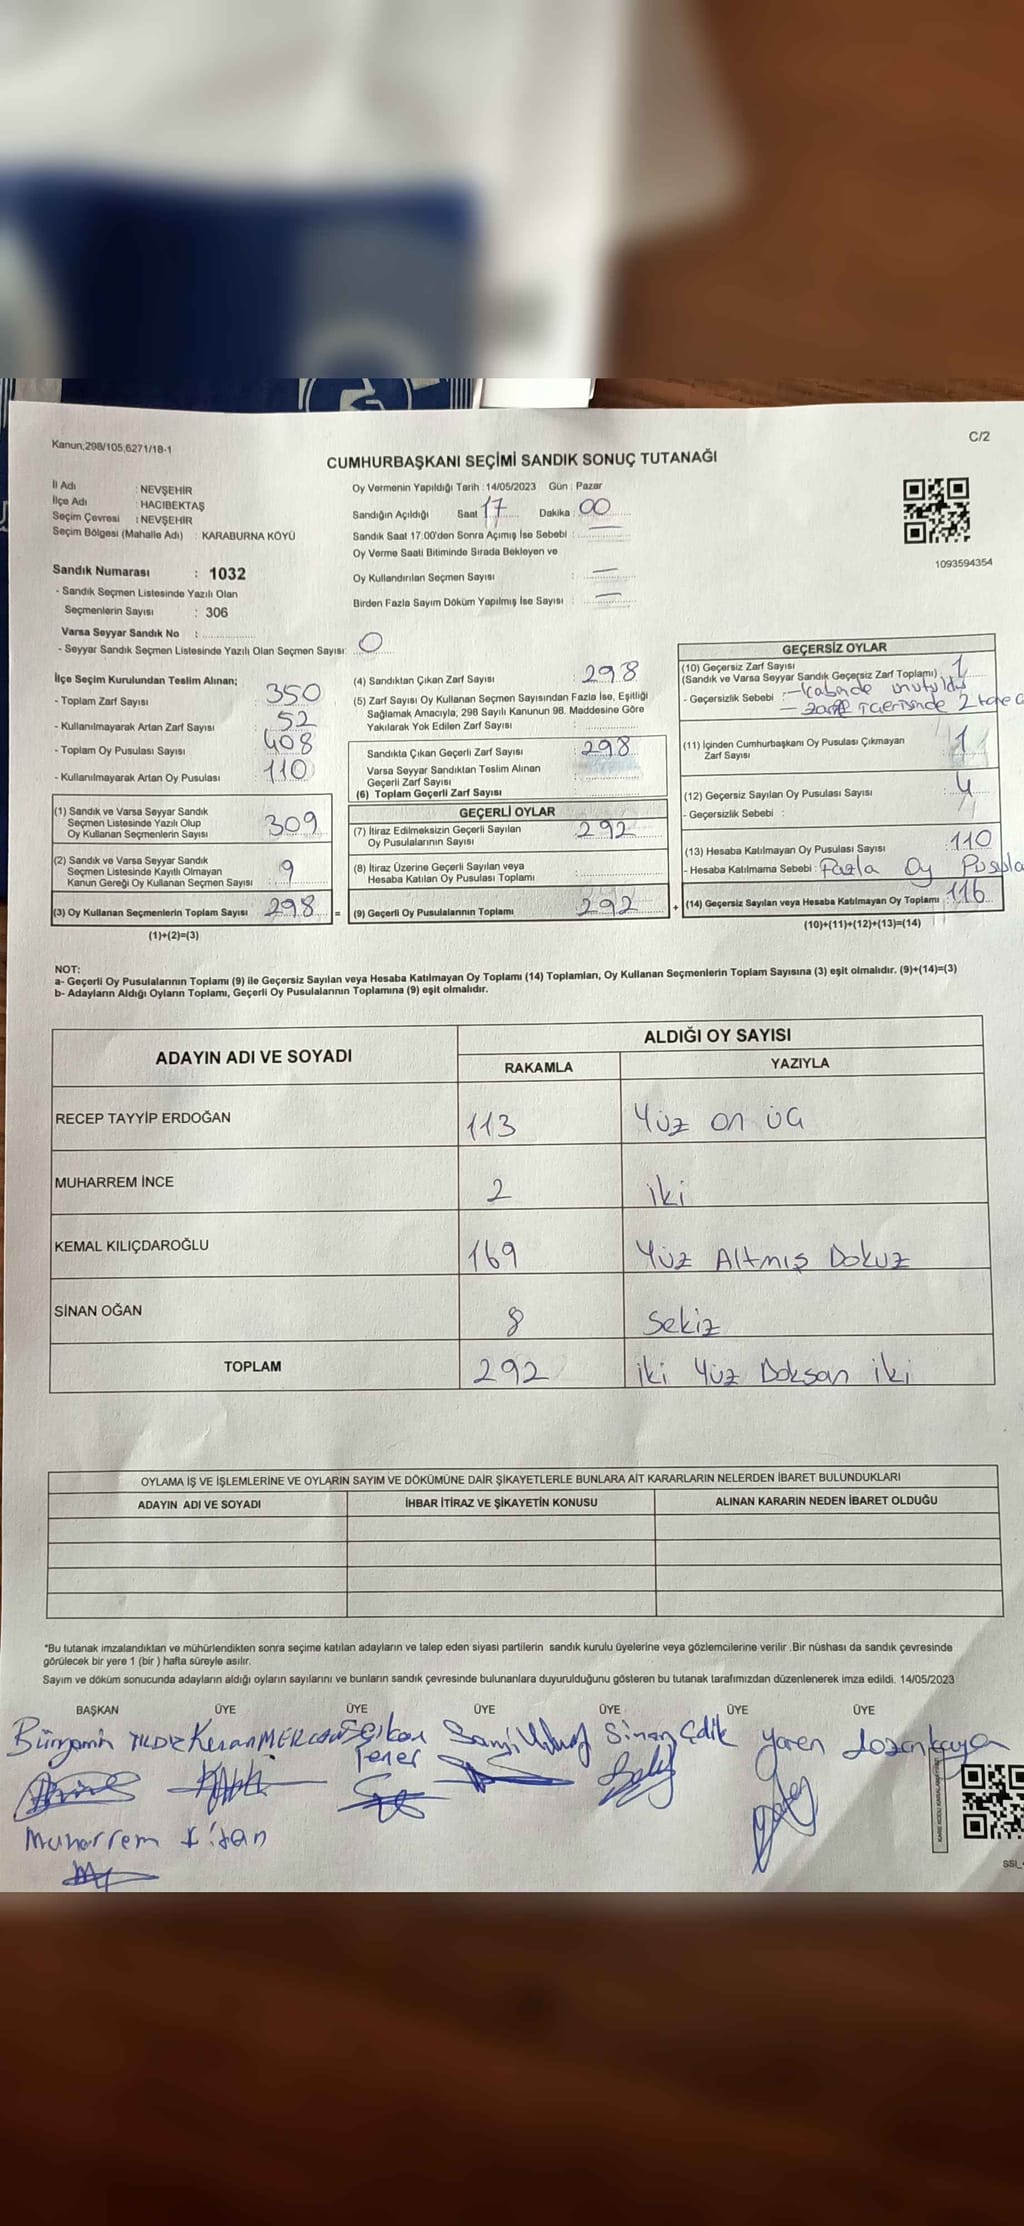 Kanun;298/105,6271/18-1
C/2
CUMHURBAŞKANI SEÇİMİ SANDIK SONUÇ TUTANAĞI
İl Adı : NEVŞEHİR
İlçe Adı : HACIBEKTAŞ
Seçim Çevresi : NEVŞEHİR
Seçim Bölgesi (Mahalle Adı) : KARABURNA KÖYÜ
Sandık Numarası : 1032
- Sandık Seçmen Listesinde Yazılı Olan
Seçmenlerin Sayısı : 306
Varsa Seyyar Sandık No :
- Seyyar Sandık Seçmen Listesinde Yazılı Olan Seçmen Sayısı: 0
Oy Vermenin Yapıldığı Tarih : 14/05/2023 Gün : Pazar
Sandığın Açıldığı Saat 17 Dakika 00
Sandık Saat 17.00'den Sonra Açımış İse Sebebi :
Oy Verme Saati Bitiminde Sırada Bekleyen ve
Oy Kullandırılan Seçmen Sayısı : —
Birden Fazla Sayım Döküm Yapılmış İse Sayısı : —
1093594354
İlçe Seçim Kurulundan Teslim Alınan;
- Toplam Zarf Sayısı : 350
- Kullanılmayarak Artan Zarf Sayısı : 52
- Toplam Oy Pusulası Sayısı : 408
- Kullanılmayarak Artan Oy Pusulası : 110
(1) Sandık ve Varsa Seyyar Sandık
Seçmen Listesinde Yazılı Olup
Oy Kullanan Seçmenlerin Sayısı : 309
(2) Sandık ve Varsa Seyyar Sandık
Seçmen Listesinde Kayıtlı Olmayan
Kanun Gereği Oy Kullanan Seçmen Sayısı : 9
(3) Oy Kullanan Seçmenlerin Toplam Sayısı : 298 =
(1)+(2)=(3)
(4) Sandıktan Çıkan Zarf Sayısı : 298
(5) Zarf Sayısı Oy Kullanan Seçmen Sayısından Fazla İse, Eşitliği
Sağlamak Amacıyla; 298 Sayılı Kanunun 98. Maddesine Göre
Yakılarak Yok Edilen Zarf Sayısı :
Sandıkta Çıkan Geçerli Zarf Sayısı : 298
Varsa Seyyar Sandıktan Teslim Alınan
Geçerli Zarf Sayısı :
(6) Toplam Geçerli Zarf Sayısı
GEÇERLİ OYLAR
(7) İtiraz Edilmeksizin Geçerli Sayılan
Oy Pusulalarının Sayısı : 292
(8) İtiraz Üzerine Geçerli Sayılan veya
Hesaba Katılan Oy Pusulası Toplamı :
(9) Geçerli Oy Pusulalarının Toplamı : 292 +
GEÇERSİZ OYLAR
(10) Geçersiz Zarf Sayısı
(Sandık ve Varsa Seyyar Sandık Geçersiz Zarf Toplamı) : 1
- Geçersizlik Sebebi : - Kabinde unutuldu
- zarf içerisinde 2 tane
(11) İçinden Cumhurbaşkanı Oy Pusulası Çıkmayan
Zarf Sayısı : 1
(12) Geçersiz Sayılan Oy Pusulası Sayısı : 4
- Geçersizlik Sebebi :
(13) Hesaba Katılmayan Oy Pusulası Sayısı : 110
- Hesaba Katılmama Sebebi : Fazla Oy Pusula
(14) Geçersiz Sayılan veya Hesaba Katılmayan Oy Toplamı : 116
(10)+(11)+(12)+(13)=(14)
NOT:
a- Geçerli Oy Pusulalarının Toplamı (9) ile Geçersiz Sayılan veya Hesaba Katılmayan Oy Toplamı (14) Toplamları, Oy Kullanan Seçmenlerin Toplam Sayısına (3) eşit olmalıdır. (9)+(14)=(3)
b- Adayların Aldığı Oyların Toplamı, Geçerli Oy Pusulalarının Toplamına (9) eşit olmalıdır.
ADAYIN ADI VE SOYADI
ALDIĞI OY SAYISI
RAKAMLA YAZIYLA
RECEP TAYYİP ERDOĞAN 113 Yüz on üç
MUHARREM İNCE 2 iki
KEMAL KILIÇDAROĞLU 169 Yüz Altmış Dokuz
SİNAN OĞAN 8 Sekiz
TOPLAM 292 iki Yüz Doksan iki
OYLAMA İŞ VE İŞLEMLERİNE VE OYLARIN SAYIM VE DÖKÜMÜNE DAİR ŞİKAYETLERLE BUNLARA AİT KARARLARIN NELERDEN İBARET BULUNDUKLARI
ADAYIN ADI VE SOYADI İHBAR İTİRAZ VE ŞİKAYETİN KONUSU ALINAN KARARIN NEDEN İBARET OLDUĞU
*Bu tutanak imzalandıktan ve mühürlendikten sonra seçime katılan adayların ve talep eden siyasi partilerin sandık kurulu üyelerine veya gözlemcilerine verilir .Bir nüshası da sandık çevresinde
görülecek bir yere 1 (bir ) hafta süreyle asılır.
Sayım ve döküm sonucunda adayların aldığı oyların sayılarını ve bunların sandık çevresinde bulunanlara duyurulduğunu gösteren bu tutanak tarafımızdan düzenlenerek imza edildi. 14/05/2023
BAŞKAN ÜYE ÜYE ÜYE ÜYE ÜYE ÜYE
Bünyamin YILDIZ Kenan MERCAN Sinan Çdik Yaren
Muharrem